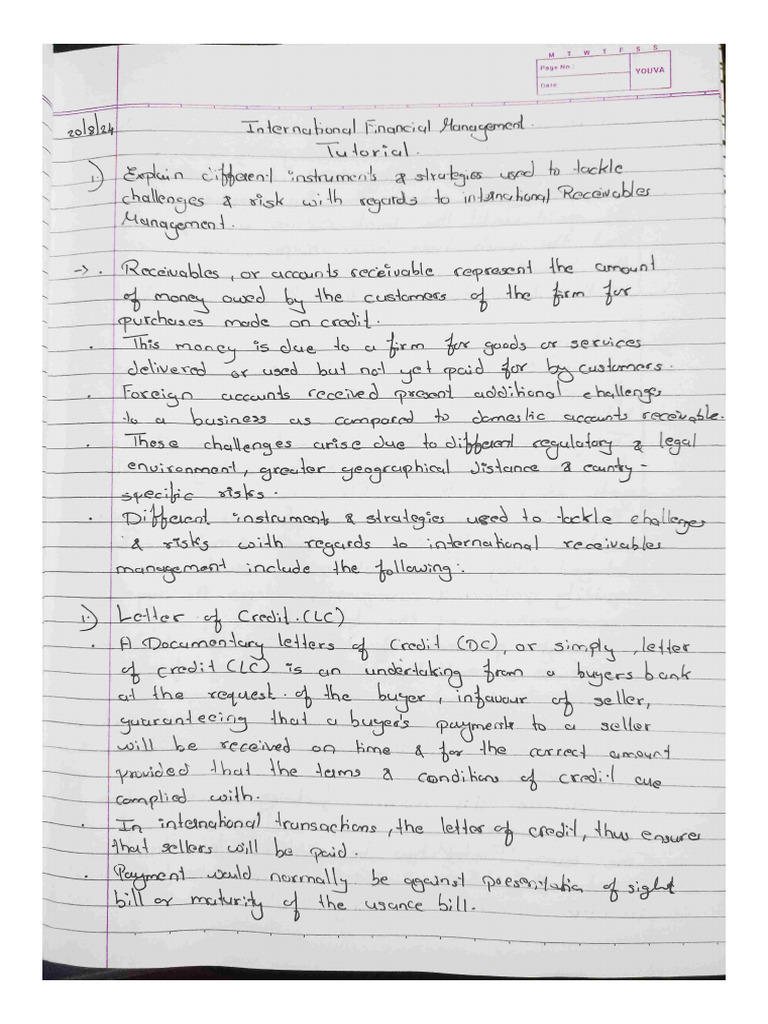 M T W T F S S
Page No.:
YOUVA
Date
20/8/24
International Financial Management.
Tutorial.
1.) Explain different instruments & strategies used to tackle
challenges & risk with regards to international Receivables
Management.
-> . Receivables, or accounts receivable represent the amount
of money owed by the customers of the firm for
purchases made on credit.
. This money is due to a firm for goods or services
delivered or used but not yet paid for by customers.
. Foreign accounts received present additional challenges
to a business as compared to domestic accounts receivable.
. These challenges arise due to different regulatory & legal
environment, greater geographical distance & county-
specific risks.
. Different instruments & strategies used to tackle challenges
& risks with regards to international receivables
management include the following:
1.) Letter of Credit.(LC)
. A Documentary letters of credit (DC), or simply, letter
of credit (LC) is an undertaking from a buyers bank
at the request of the buyer, infavour of seller,
guaranteeing that a buyer's payments to a seller
will be received on time & for the correct amount
provided that the terms & conditions of credit are
complied with.
. In international transactions, the letter of credit, thus ensures
that sellers will be paid.
. Payment would normally be against presentation of sight
bill or maturity of the usance bill.